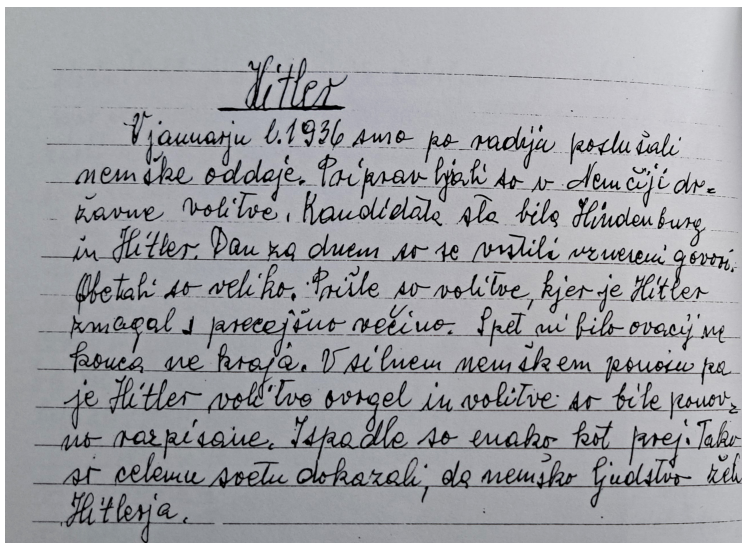 Hitler
V januarju l. 1936 smo po radiju poslušali
nemške oddaje. Pripravljali so v Nemčiji dr=
žavne volitve. Kandidata sta bila Hindenburg
in Hitler. Dan za dnem so se vrstili vzneseni govori.
Obetali so veliko. Prišle so volitve, kjer je Hitler
zmagal s precejšno večino. Spet ni bilo ovacij ne
konca ne kraja. V silnem nemškem ponosu pa
je Hitler volitve ovrgel in volitve so bile ponov=
no razpisane. Izpadle so enako kot prej. Tako
so celemu svetu dokazali, da nemško ljudstvo želi
Hitlerja.